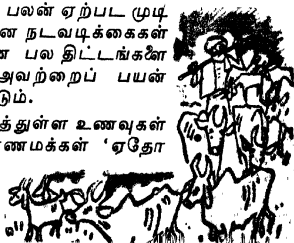 பலன் ஏற்பட முடி
ன நடவடிக்கைகள்
ன பல திட்டங்களை
அவற்றைப் பயன்
டும்.
த்துள்ள உணவுகள்
ணமக்கள் 'ஏதோ